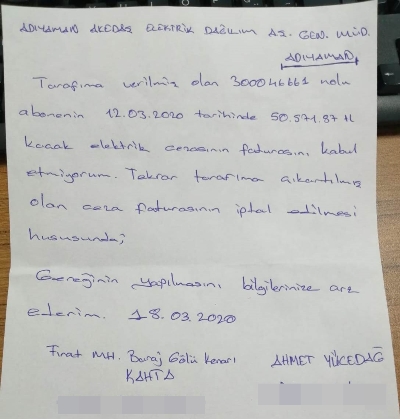 ADIYAMAN AKEDAŞ ELEKTRİK DAĞILIM AŞ. GEN. MÜD.
ADIYAMAN
Tarafıma verilmiş olan 300046661 nolu
abonenin 12.03.2020 tarihinde 50.571.87 tl
kaçak elektrik cezasının faturasını kabul
etmiyorum. Tekrar tarafıma çıkartılmış
olan ceza faturasının iptal edilmesi
hususunda;
Gereğinin yapılmasını bilgilerinize arz
ederim. 18.03.2020
Fırat MH. Baraj Gölü Kenarı AHMET YÜCEDAĞ
KAHTA